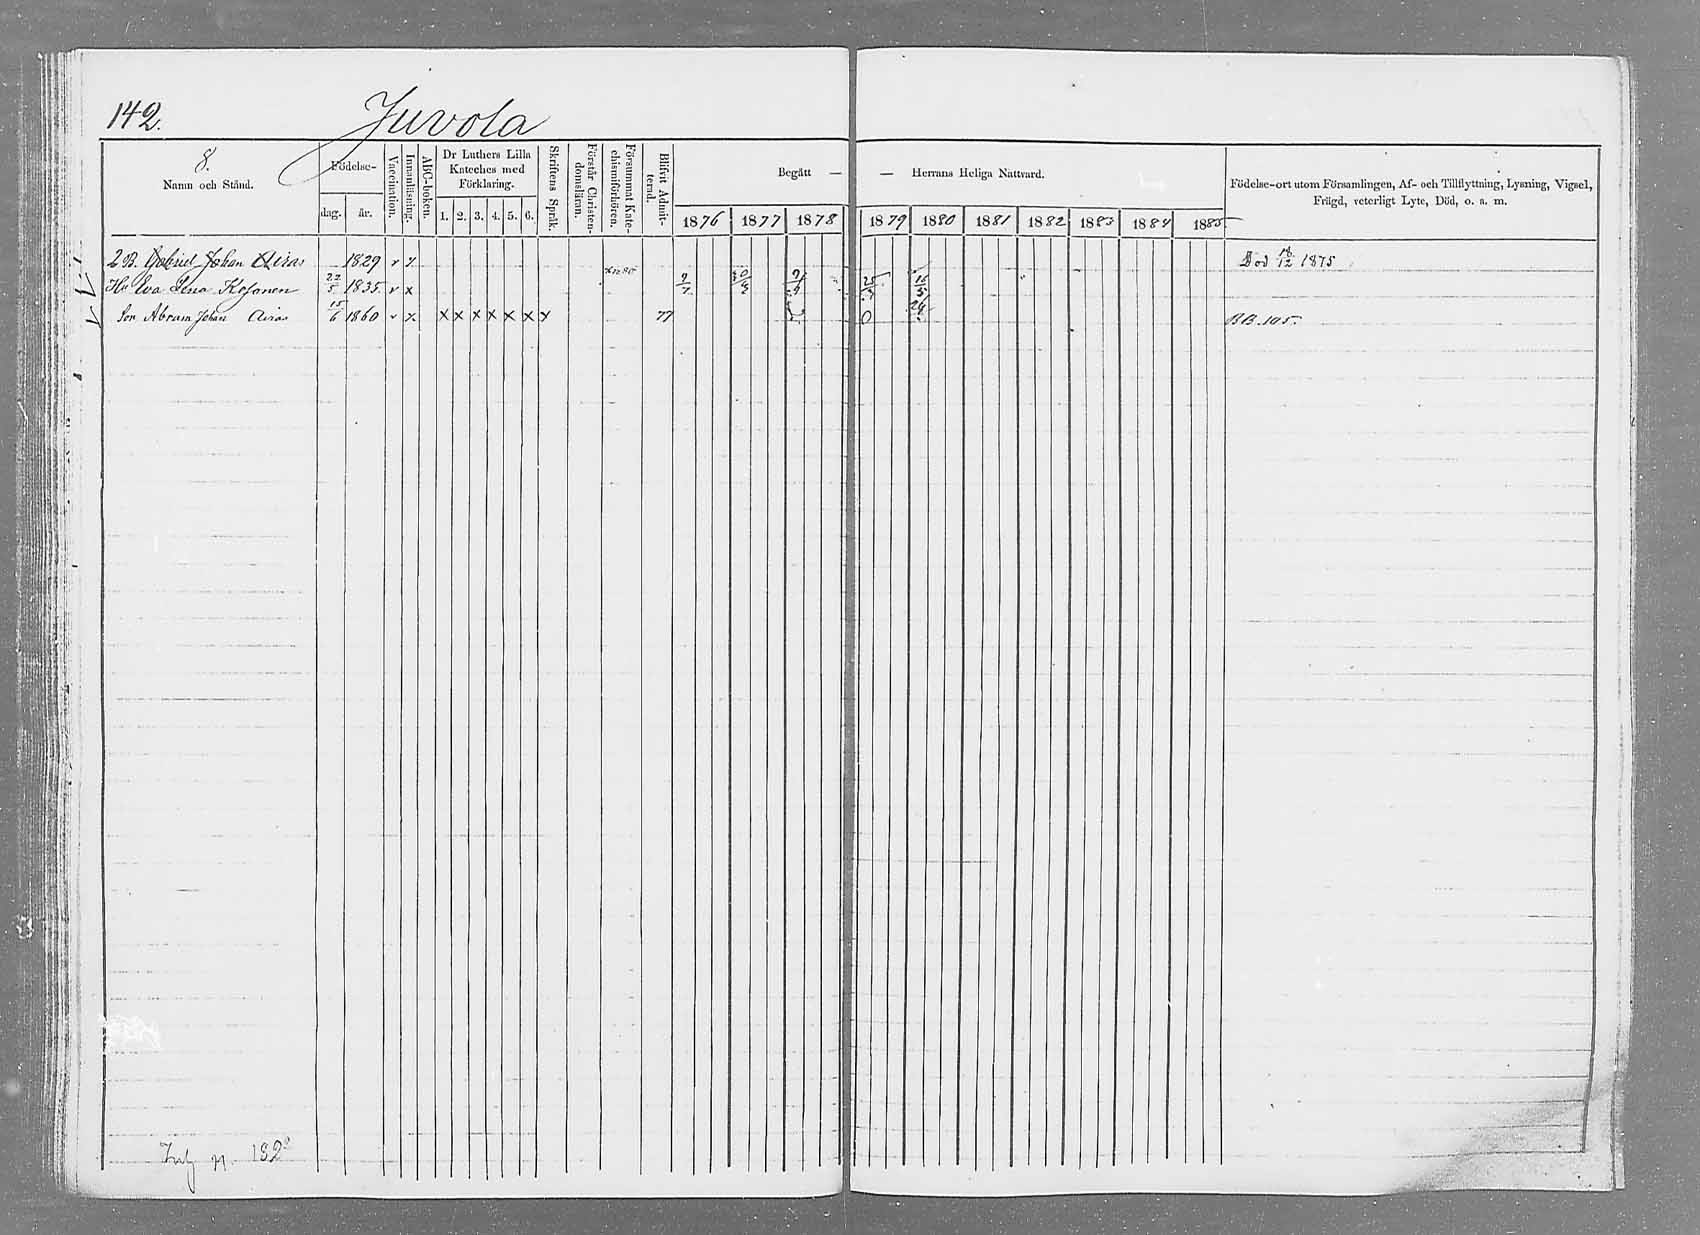 142. Juvola
8.
Namn och Stånd.
Födelse-
dag. år.
Vaccination.
Innanläsning.
ABC-boken.
Dr Luthers Lilla
Kateches med
Förklaring.
1. 2. 3. 4. 5. 6.
Skriftens Språk.
Förstår Christen-
domsläran.
Försummat Kate-
chismiförhören.
Blifvit Admit-
terad.
Begått — — Herrans Heliga Nattvard.
1876 1877 1878 1879 1880 1881 1882 1883 1884 1885
Födelse-ort utom Församlingen, Af- och Tillflyttning, Lysning, Vigsel,
Frägd, veterligt Lyte, Död, o. a. m.
Gabriel Johan 1829 v x Död 1875
Hu Eva Lena Kosonen 22/5 1835 v x
Son Abram Johan 15/6 1860 v x x x x x x x x 77 BB. 105.